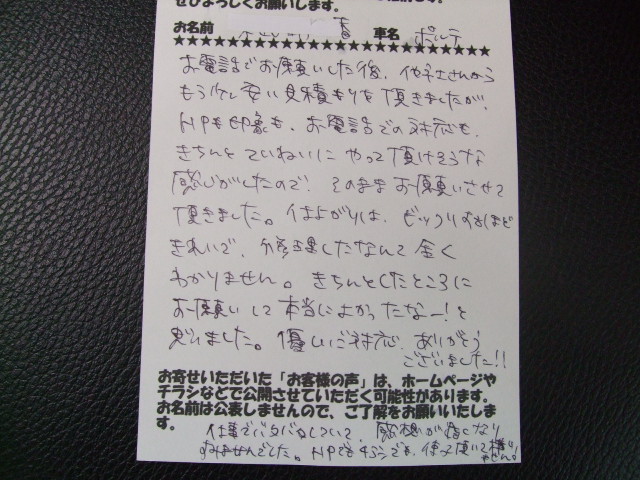 ぜひよろしくお願いします。
お名前 車名 ポルテ
★★★★★★★★★★★★★★★★★★★★★★★★
お電話でお願いした後、他社さんから
もう少し安い見積もりを頂きましたが、
HPも印象も、お電話での対応も、
きちんとていねいにやって頂けそうな
感じがしたので、そのままお願いさせて
頂きました。仕上がりは、ビックリするほど
きれいで、修理したなんて全く
わかりません。きちんとしたところに
お願いして本当によかったなー!と
思いました。優しいご対応、ありがとう
ございました!!
お寄せいただいた「お客様の声」は、ホームページや
チラシなどで公開させていただく可能性があります。
お名前は公表しませんので、ご了解をお願いいたしま
す。
仕事でバタバタしていて、感想が遅くなり
すみませんでした。HPでもチラシでも、使って頂いて構い
ません!